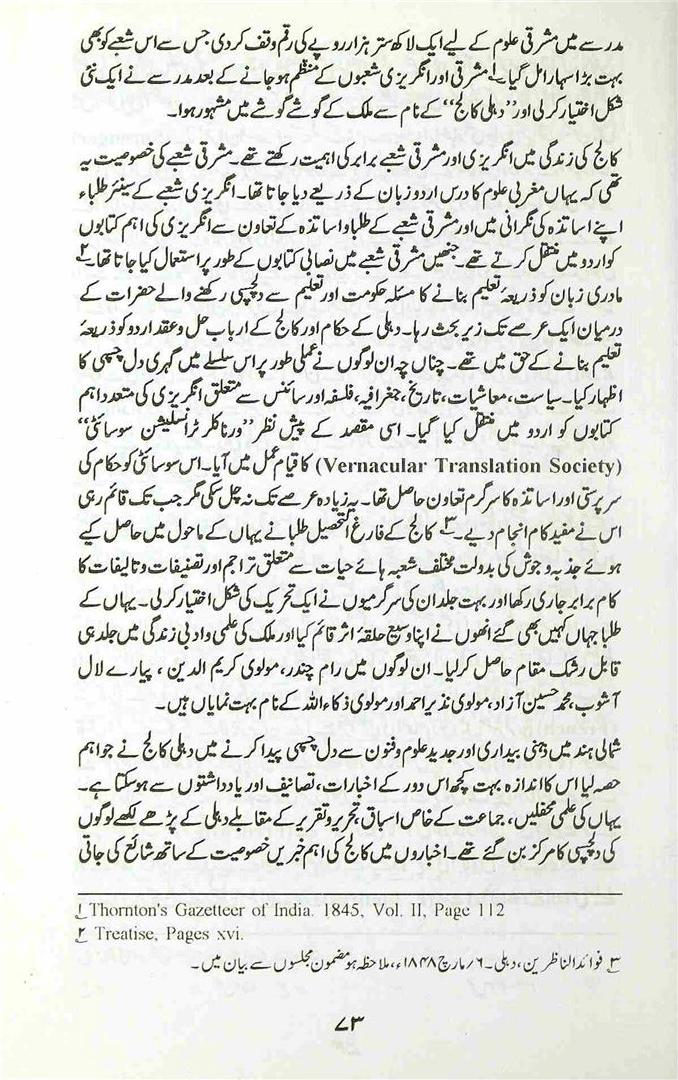 مدرسے میں مشرقی علوم کے لیے ایک لاکھ ستر ہزار روپے کی رقم وقف کر دی جس سے اس شعبے کو بھی
بہت بڑا سہارا مل گیا۔۱ مشرقی اور انگریزی شعبوں کے منظم ہو جانے کے بعد مدرسے نے ایک نئی
شکل اختیار کر لی اور ”دہلی کالج“ کے نام سے ملک کے گوشے گوشے میں مشہور ہوا۔
کالج کی زندگی میں انگریزی اور مشرقی شعبے برابر کی اہمیت رکھتے تھے۔ مشرقی شعبے کی خصوصیت یہ
تھی کہ یہاں مغربی علوم کا درس اردو زبان کے ذریعے دیا جاتا تھا۔ انگریزی شعبے کے سینئر طلباء
اپنے اساتذہ کی نگرانی میں اور مشرقی شعبے کے طلبا و اساتذہ کے تعاون سے انگریزی کی اہم کتابوں
کو اردو میں منتقل کرتے تھے۔ جنھیں مشرقی شعبے میں نصابی کتابوں کے طور پر استعمال کیا جاتا تھا۔۲
مادری زبان کو ذریعۂ تعلیم بنانے کا مسئلہ حکومت اور تعلیم سے دلچسپی رکھنے والے حضرات کے
درمیان ایک عرصے تک زیر بحث رہا۔ دہلی کے حکام اور کالج کے ارباب حل و عقد اردو کو ذریعۂ
تعلیم بنانے کے حق میں تھے۔ چناں چہ ان لوگوں نے عملی طور پر اس سلسلے میں گہری دل چسپی کا
اظہار کیا۔ سیاست، معاشیات، تاریخ، جغرافیہ، فلسفہ اور سائنس سے متعلق انگریزی کی متعدد اہم
کتابوں کو اردو میں منتقل کیا گیا۔ اسی مقصد کے پیش نظر ”ورناکلر ٹرانسلیشن سوسائٹی“
(Vernacular Translation Society) کا قیام عمل میں آیا۔ اس سوسائٹی کو حکام کی
سرپرستی اور اساتذہ کا سرگرم تعاون حاصل تھا۔ یہ زیادہ عرصے تک نہ چل سکی مگر جب تک قائم رہی
اس نے مفید کام انجام دیے۔۳ کالج کے فارغ التحصیل طلبا نے یہاں کے ماحول میں حاصل کیے
ہوئے جذبہ و جوش کی بدولت مختلف شعبہ ہائے حیات سے متعلق تراجم اور تصنیفات و تالیفات کا
کام برابر جاری رکھا اور بہت جلد ان کی سرگرمیوں نے ایک تحریک کی شکل اختیار کر لی۔ یہاں کے
طلبا جہاں کہیں بھی گئے انھوں نے اپنا وسیع حلقۂ اثر قائم کیا اور ملک کی علمی و ادبی زندگی میں جلد ہی
قابل رشک مقام حاصل کر لیا۔ ان لوگوں میں رام چندر، مولوی کریم الدین، پیارے لال
آشوب، محمد حسین آزاد، مولوی نذیر احمد اور مولوی ذکاء اللہ کے نام بہت نمایاں ہیں۔
شمالی ہند میں ذہنی بیداری اور جدید علوم و فنون سے دل چسپی پیدا کرنے میں دہلی کالج نے جو اہم
حصہ لیا اس کا اندازہ بہت کچھ اس دور کے اخبارات، تصانیف اور یادداشتوں سے ہو سکتا ہے۔
یہاں کی علمی محفلیں، جماعت کے خاص اسباق، تحریر و تقریر کے مقابلے دہلی کے پڑھے لکھے لوگوں
کی دلچسپی کا مرکز بن گئے تھے۔ اخباروں میں کالج کی اہم خبریں خصوصیت کے ساتھ شائع کی جاتی
۱ Thornton's Gazetteer of India. 1845, Vol. II, Page 112
۲ Treatise, Pages xvi.
۳ فوائد الناظرین، دہلی۔ ۶/ مارچ ۱۸۴۸ء، ملاحظہ ہو مضمون مجلسوں سے بیان میں۔
۷۳